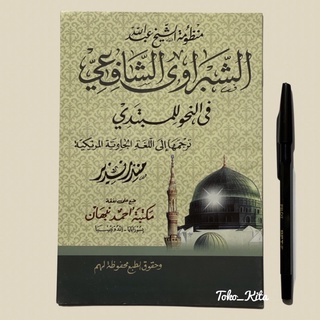 منظومة الشيخ عبد الله
الشبراوي الشافعي
في النحو للمبتدي
ترجمها إلى اللغة الجاوية المريكية
منذر نذير
مكتبة احمد نبهان
وحقوق الطبع محفوظة لهم
Toko_Kita